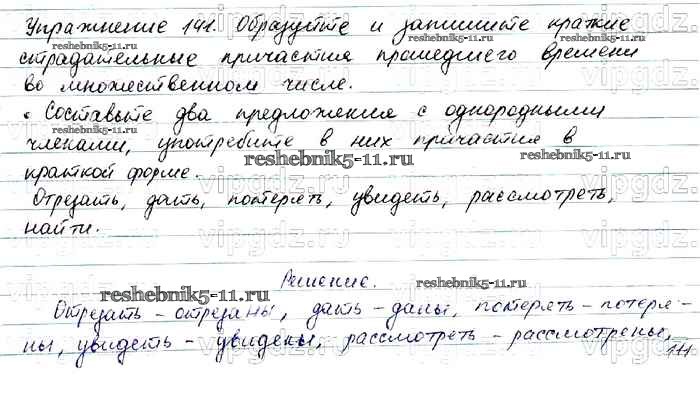 Упражнение 141. Образуйте и запишите краткие
страдательные причастия прошедшего времени
во множественном числе.
• Составьте два предложения с однородными
членами, употребите в них причастия в
краткой форме.
Отрезать, дать, потерять, увидеть, рассмотреть,
найти.
Решение.
Отрезать - отрезаны, дать - даны, потерять - потеря-
ны, увидеть - увидены, рассмотреть - рассмотрены,
141
reshebnik5-11.ru
reshebnik5-11.ru
reshebnik5-11.ru
reshebnik5-11.ru
reshebnik5-11.ru
reshebnik5-11.ru
vipgdz.ru